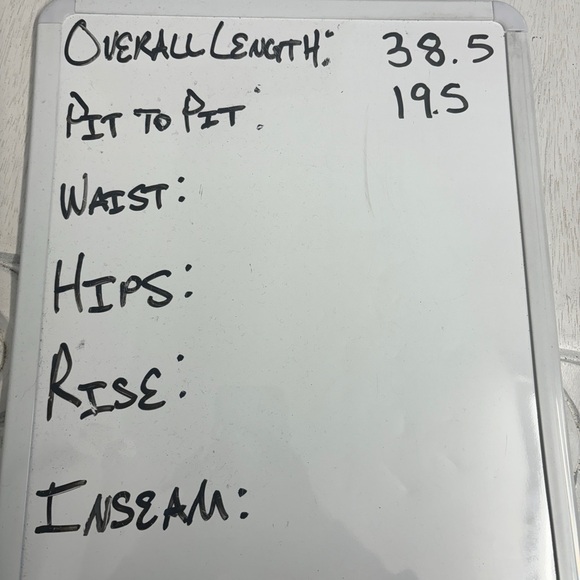 OVERALL LENGTH: 38.5
PIT TO PIT: 19.5
WAIST:
HIPS:
RISE:
INSEAM: